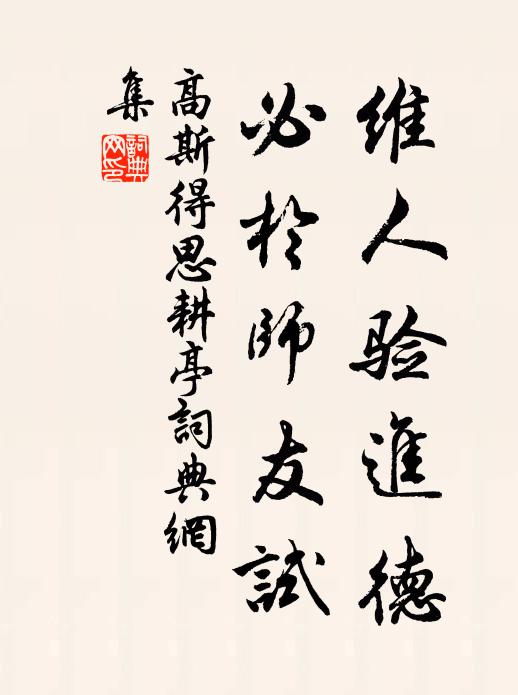 维人验進德
必於師友試
高斯得思耕亭詞典網
集
詞典网印